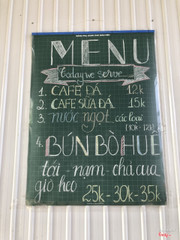 MENU
today we serve...
1. CAFE ĐÁ 12k
2. CAFE SỮA ĐÁ 15k
3. nước ngọt các loại
4. BÚN BÒ HUẾ
tái - nạm - chả cua
giò heo
25k - 30k - 35k